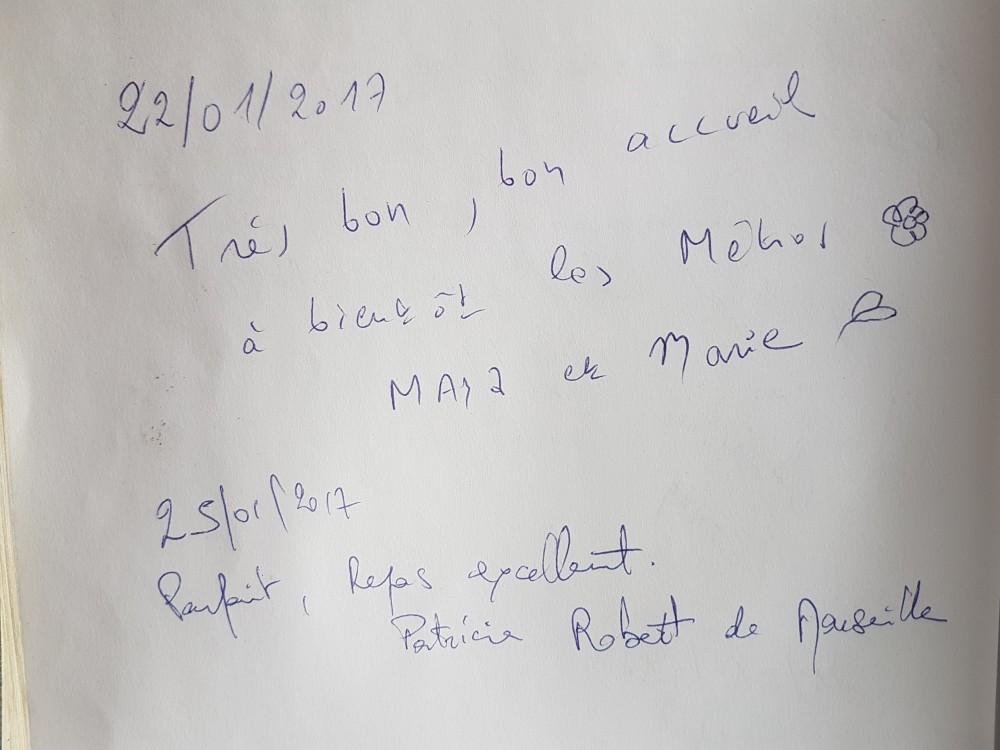 22/01/2017
Très bon, bon accueil
à bientôt les Métros
et Marie
25/01/2017
Parfait, Repas excellent.
Patricia Robert de Marseille